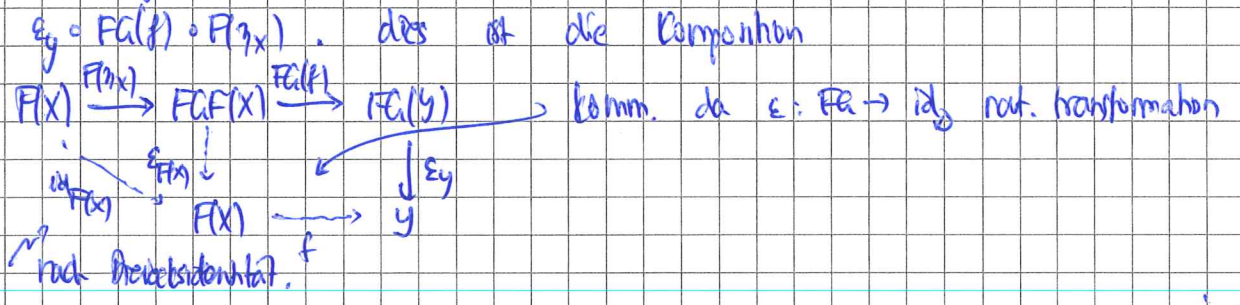 ε_y ∘ FG(f) ∘ F(η_x). dies ist die Komposition
F(X) →^{F(η_x)} FGF(X) →^{FG(f)} FG(Y) komm. da ε: FG → id_D nat. transformation
id_{F(X)} ε_{F(X)} ε_y
F(X) → Y
f
nach Dreiecksidentität.